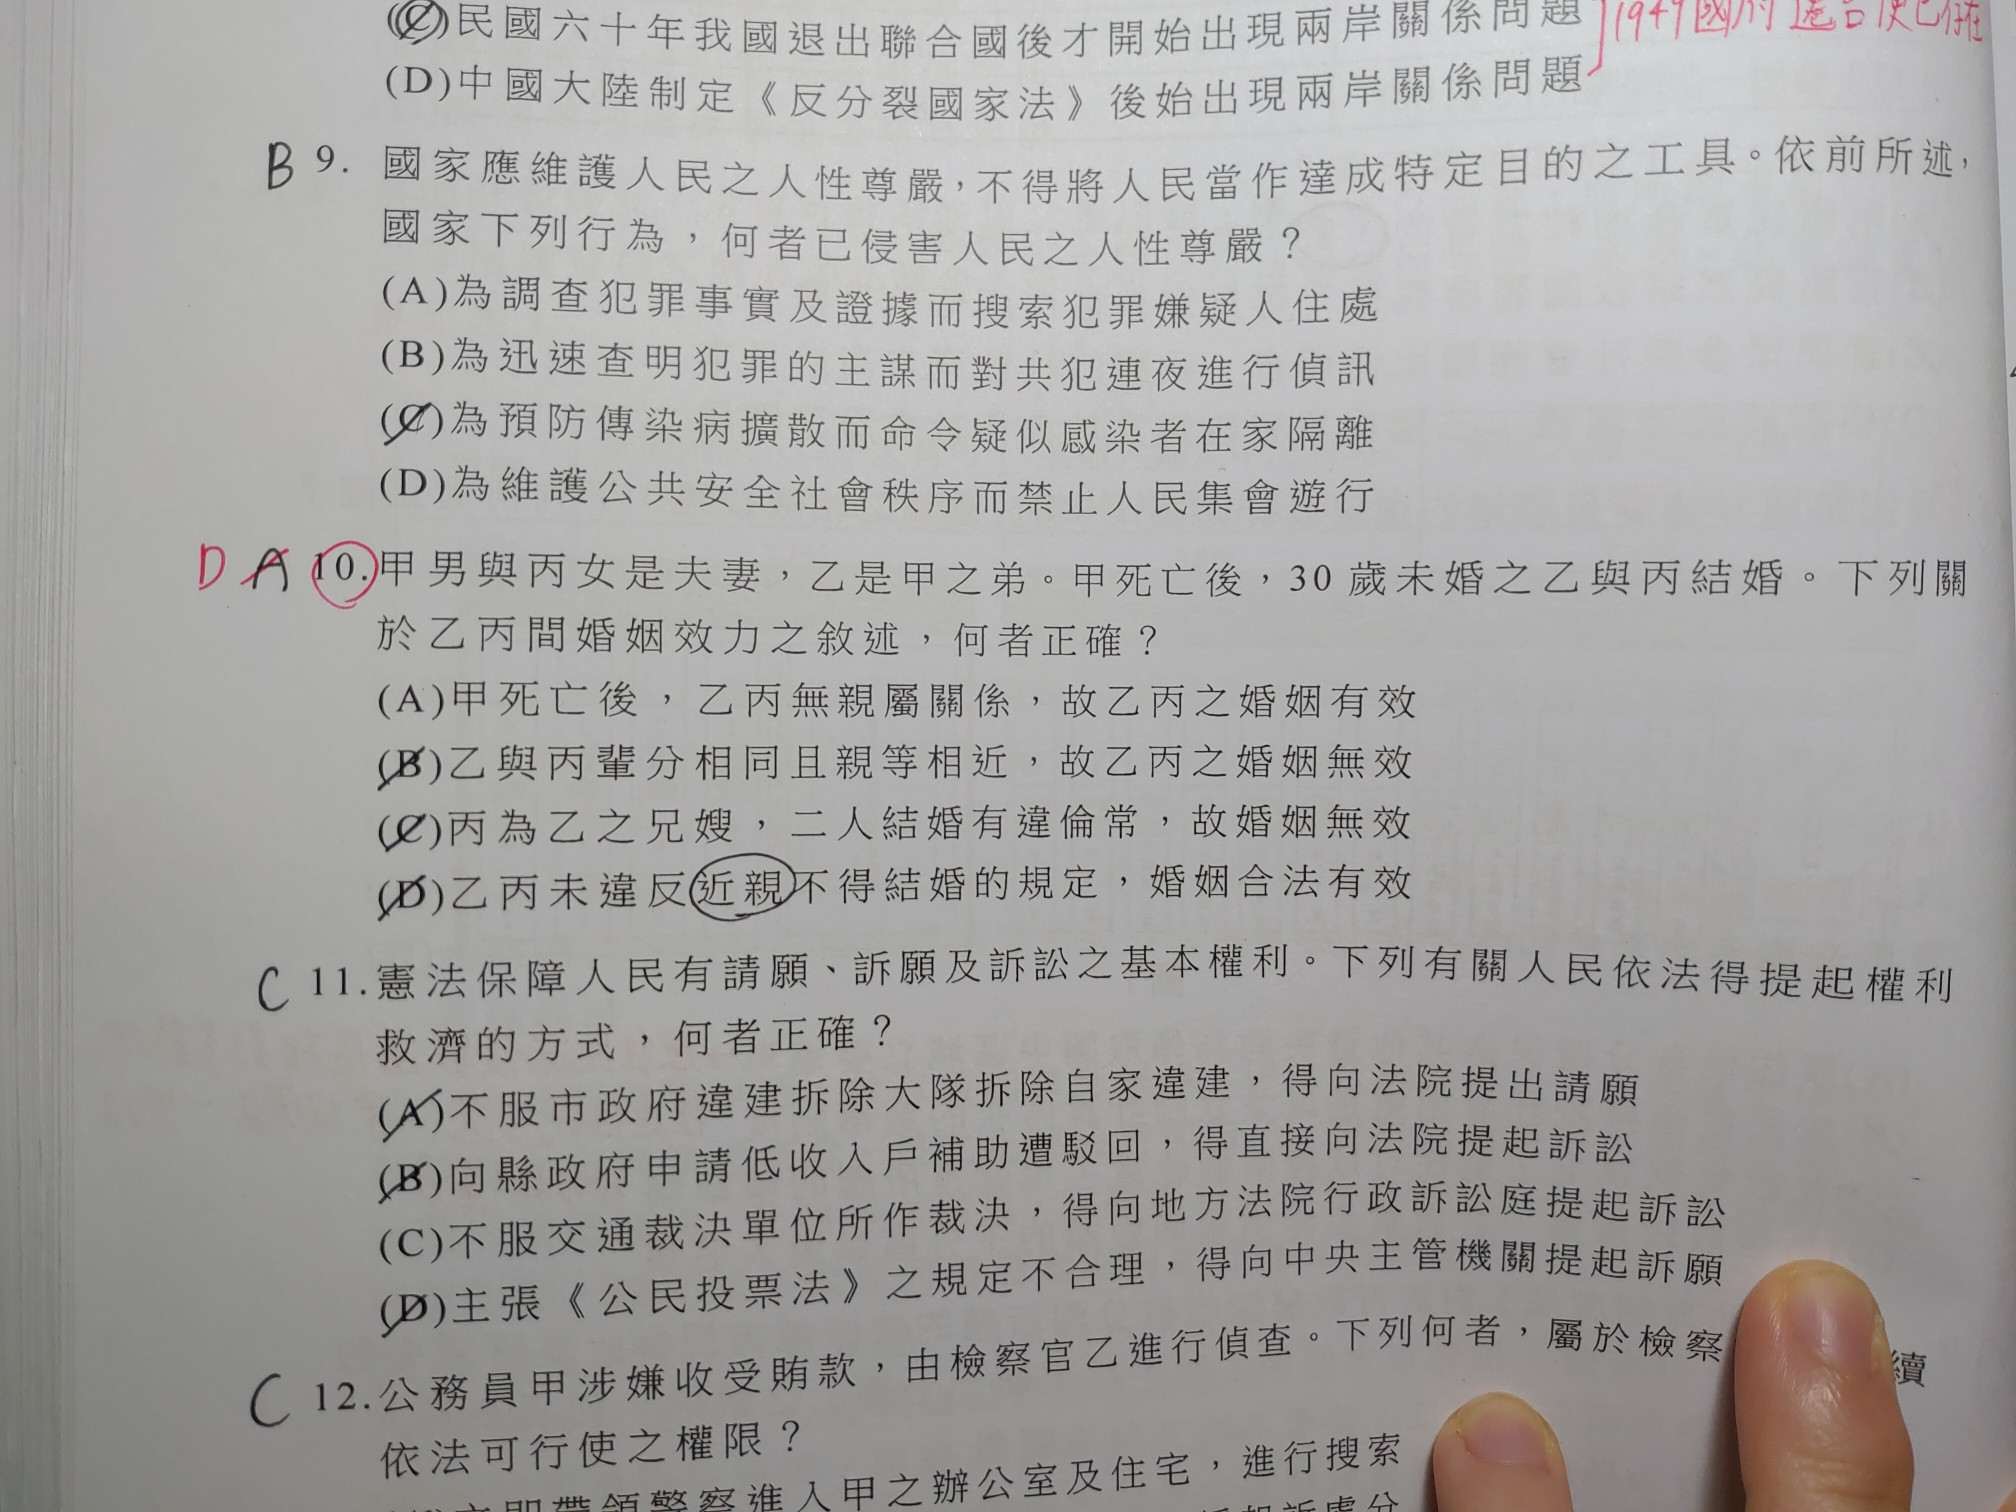 (C)民國六十年我國退出聯合國後才開始出現兩岸關係問題
1949國府遷台便已存在
(D)中國大陸制定《反分裂國家法》後始出現兩岸關係問題
B 9. 國家應維護人民之人性尊嚴，不得將人民當作達成特定目的之工具。依前所述，
國家下列行為，何者已侵害人民之人性尊嚴？
(A)為調查犯罪事實及證據而搜索犯罪嫌疑人住處
(B)為迅速查明犯罪的主謀而對共犯連夜進行偵訊
(C)為預防傳染病擴散而命令疑似感染者在家隔離
(D)為維護公共安全社會秩序而禁止人民集會遊行
D A 10.甲男與丙女是夫妻，乙是甲之弟。甲死亡後，30 歲未婚之乙與丙結婚。下列關
於乙丙間婚姻效力之敘述，何者正確？
(A)甲死亡後，乙丙無親屬關係，故乙丙之婚姻有效
(B)乙與丙輩分相同且親等相近，故乙丙之婚姻無效
(C)丙為乙之兄嫂，二人結婚有違倫常，故婚姻無效
(D)乙丙未違反近親不得結婚的規定，婚姻合法有效
C 11.憲法保障人民有請願、訴願及訴訟之基本權利。下列有關人民依法得提起權利
救濟的方式，何者正確？
(A)不服市政府違建拆除大隊拆除自家違建，得向法院提出請願
(B)向縣政府申請低收入戶補助遭駁回，得直接向法院提起訴訟
(C)不服交通裁決單位所作裁決，得向地方法院行政訴訟庭提起訴訟
(D)主張《公民投票法》之規定不合理，得向中央主管機關提起訴願
C 12.公務員甲涉嫌收受賄款，由檢察官乙進行偵查。下列何者，屬於檢察
續
依法可行使之權限？
立即帶領警察進入甲之辦公室及住宅，進行搜索